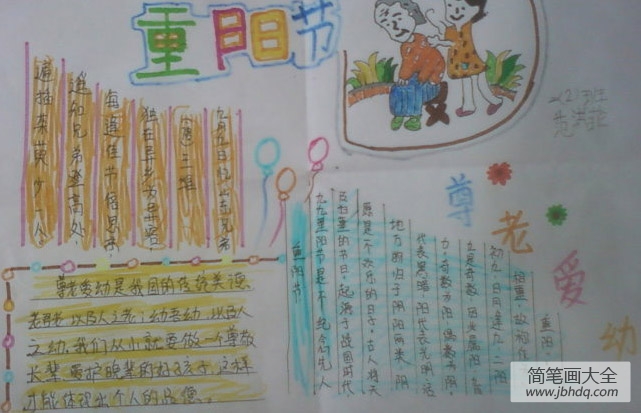 重阳节
(2)班
九月九日忆山东兄弟
(唐)王维
独在异乡为异客,
每逢佳节倍思亲。
遥知兄弟登高处,
遍插茱萸少一人。
尊老爱幼
尊老爱幼是我国的传统美德。
老吾老以及人之老;幼吾幼以及人
之幼。我们从小就要做一个尊敬
长辈爱护晚辈的好孩子,这样
才能体现出个人的品德。
重阳
初九日月逢九二
九是奇数因此属阳
力奇数为阳偶数为阴
代表黑暗,阳代表光明活
地方的归于阴阳两类阴
愿是个欢乐的日子。古人将天
及扫墓的节日。起源于战国时代
九九重阳节是个纪念先人
重阳节
简笔画大全
www.jbhdq.com